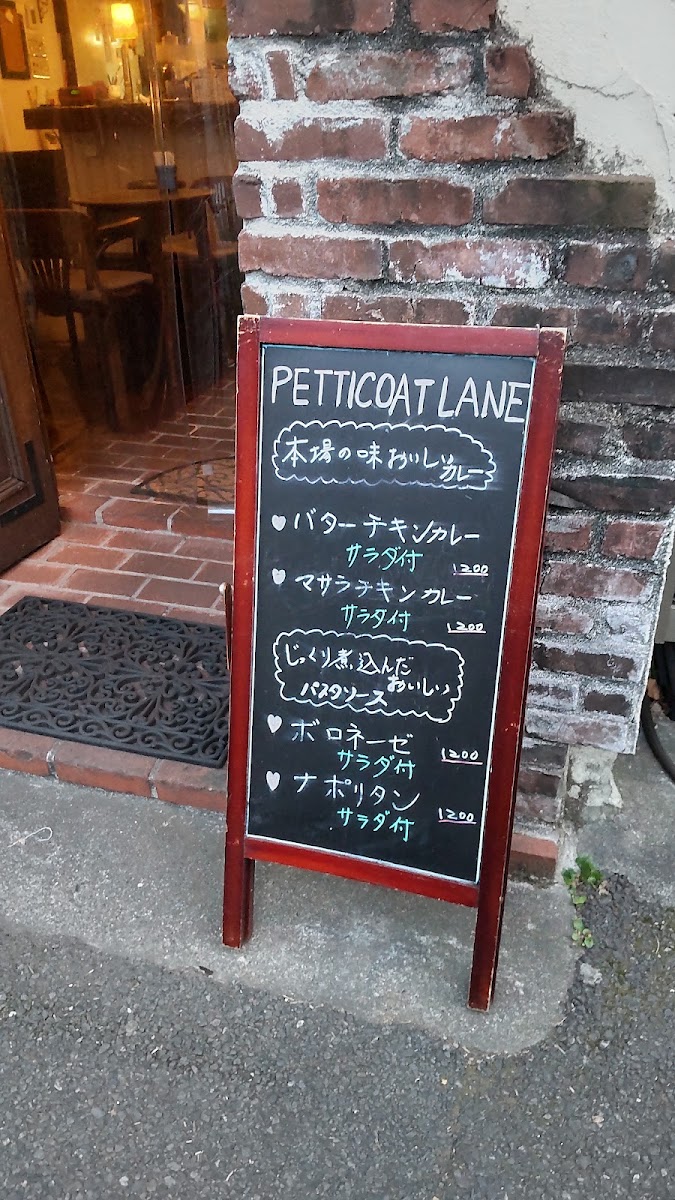 PETTICOAT LANE
本場の味おいしい
カレー
バターチキンカレー
サラダ付
1200
マサラチキンカレー
サラダ付
1200
じっくり煮込んだ
おいしい
パスタソース
ボロネーゼ
サラダ付
1200
ナポリタン
サラダ付
1200